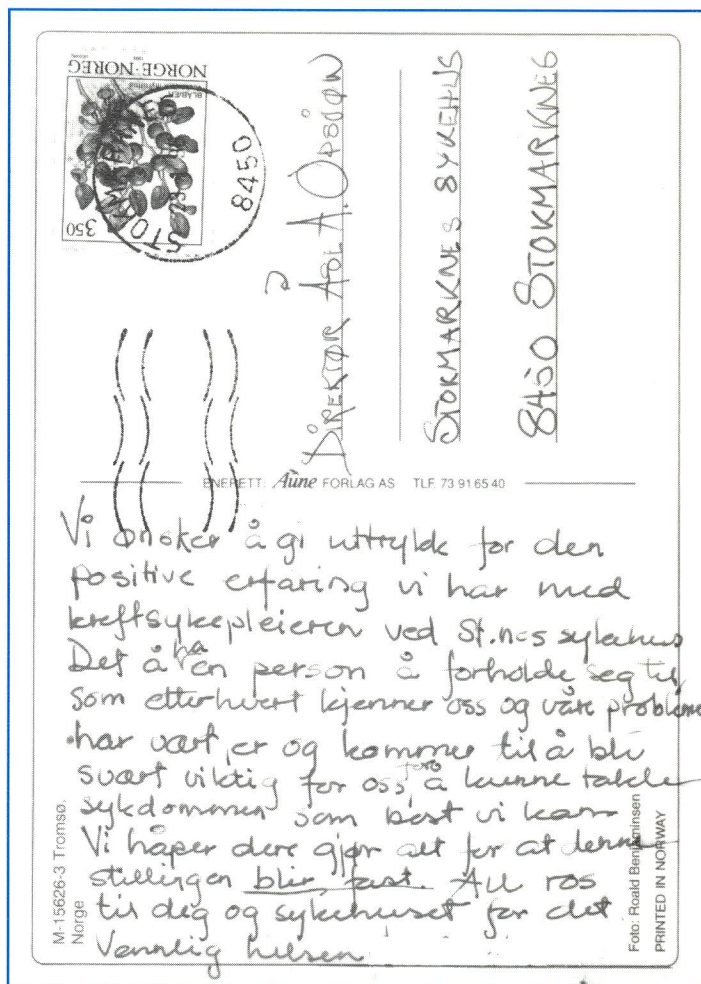 NORGE·NOREG
BLÅBÆR
350
STOKMARKNES
8450
DIREKTØR
STOKMARKNES SYKEHUS
8450 STOKMARKNES
ENERETT: Aune FORLAG AS TLF. 73 91 65 40
Vi ønsker å gi uttrykk for den
positive erfaring vi har med
kreftsykepleieren ved St.nes sykehus
Det å ha én person å forholde seg til,
som etterhvert kjenner oss og våre probleme
har vært, er og kommer til å bli
svært viktig for oss, for å kunne takle
sykdommen som best vi kan
Vi håper dere gjør alt for at denne
stillingen blir fast. All ros
til deg og sykehuset for det
Vennlig hilsen
M-15626-3 Tromsø.
Norge
Foto: Roald Benjaminsen
PRINTED IN NORWAY